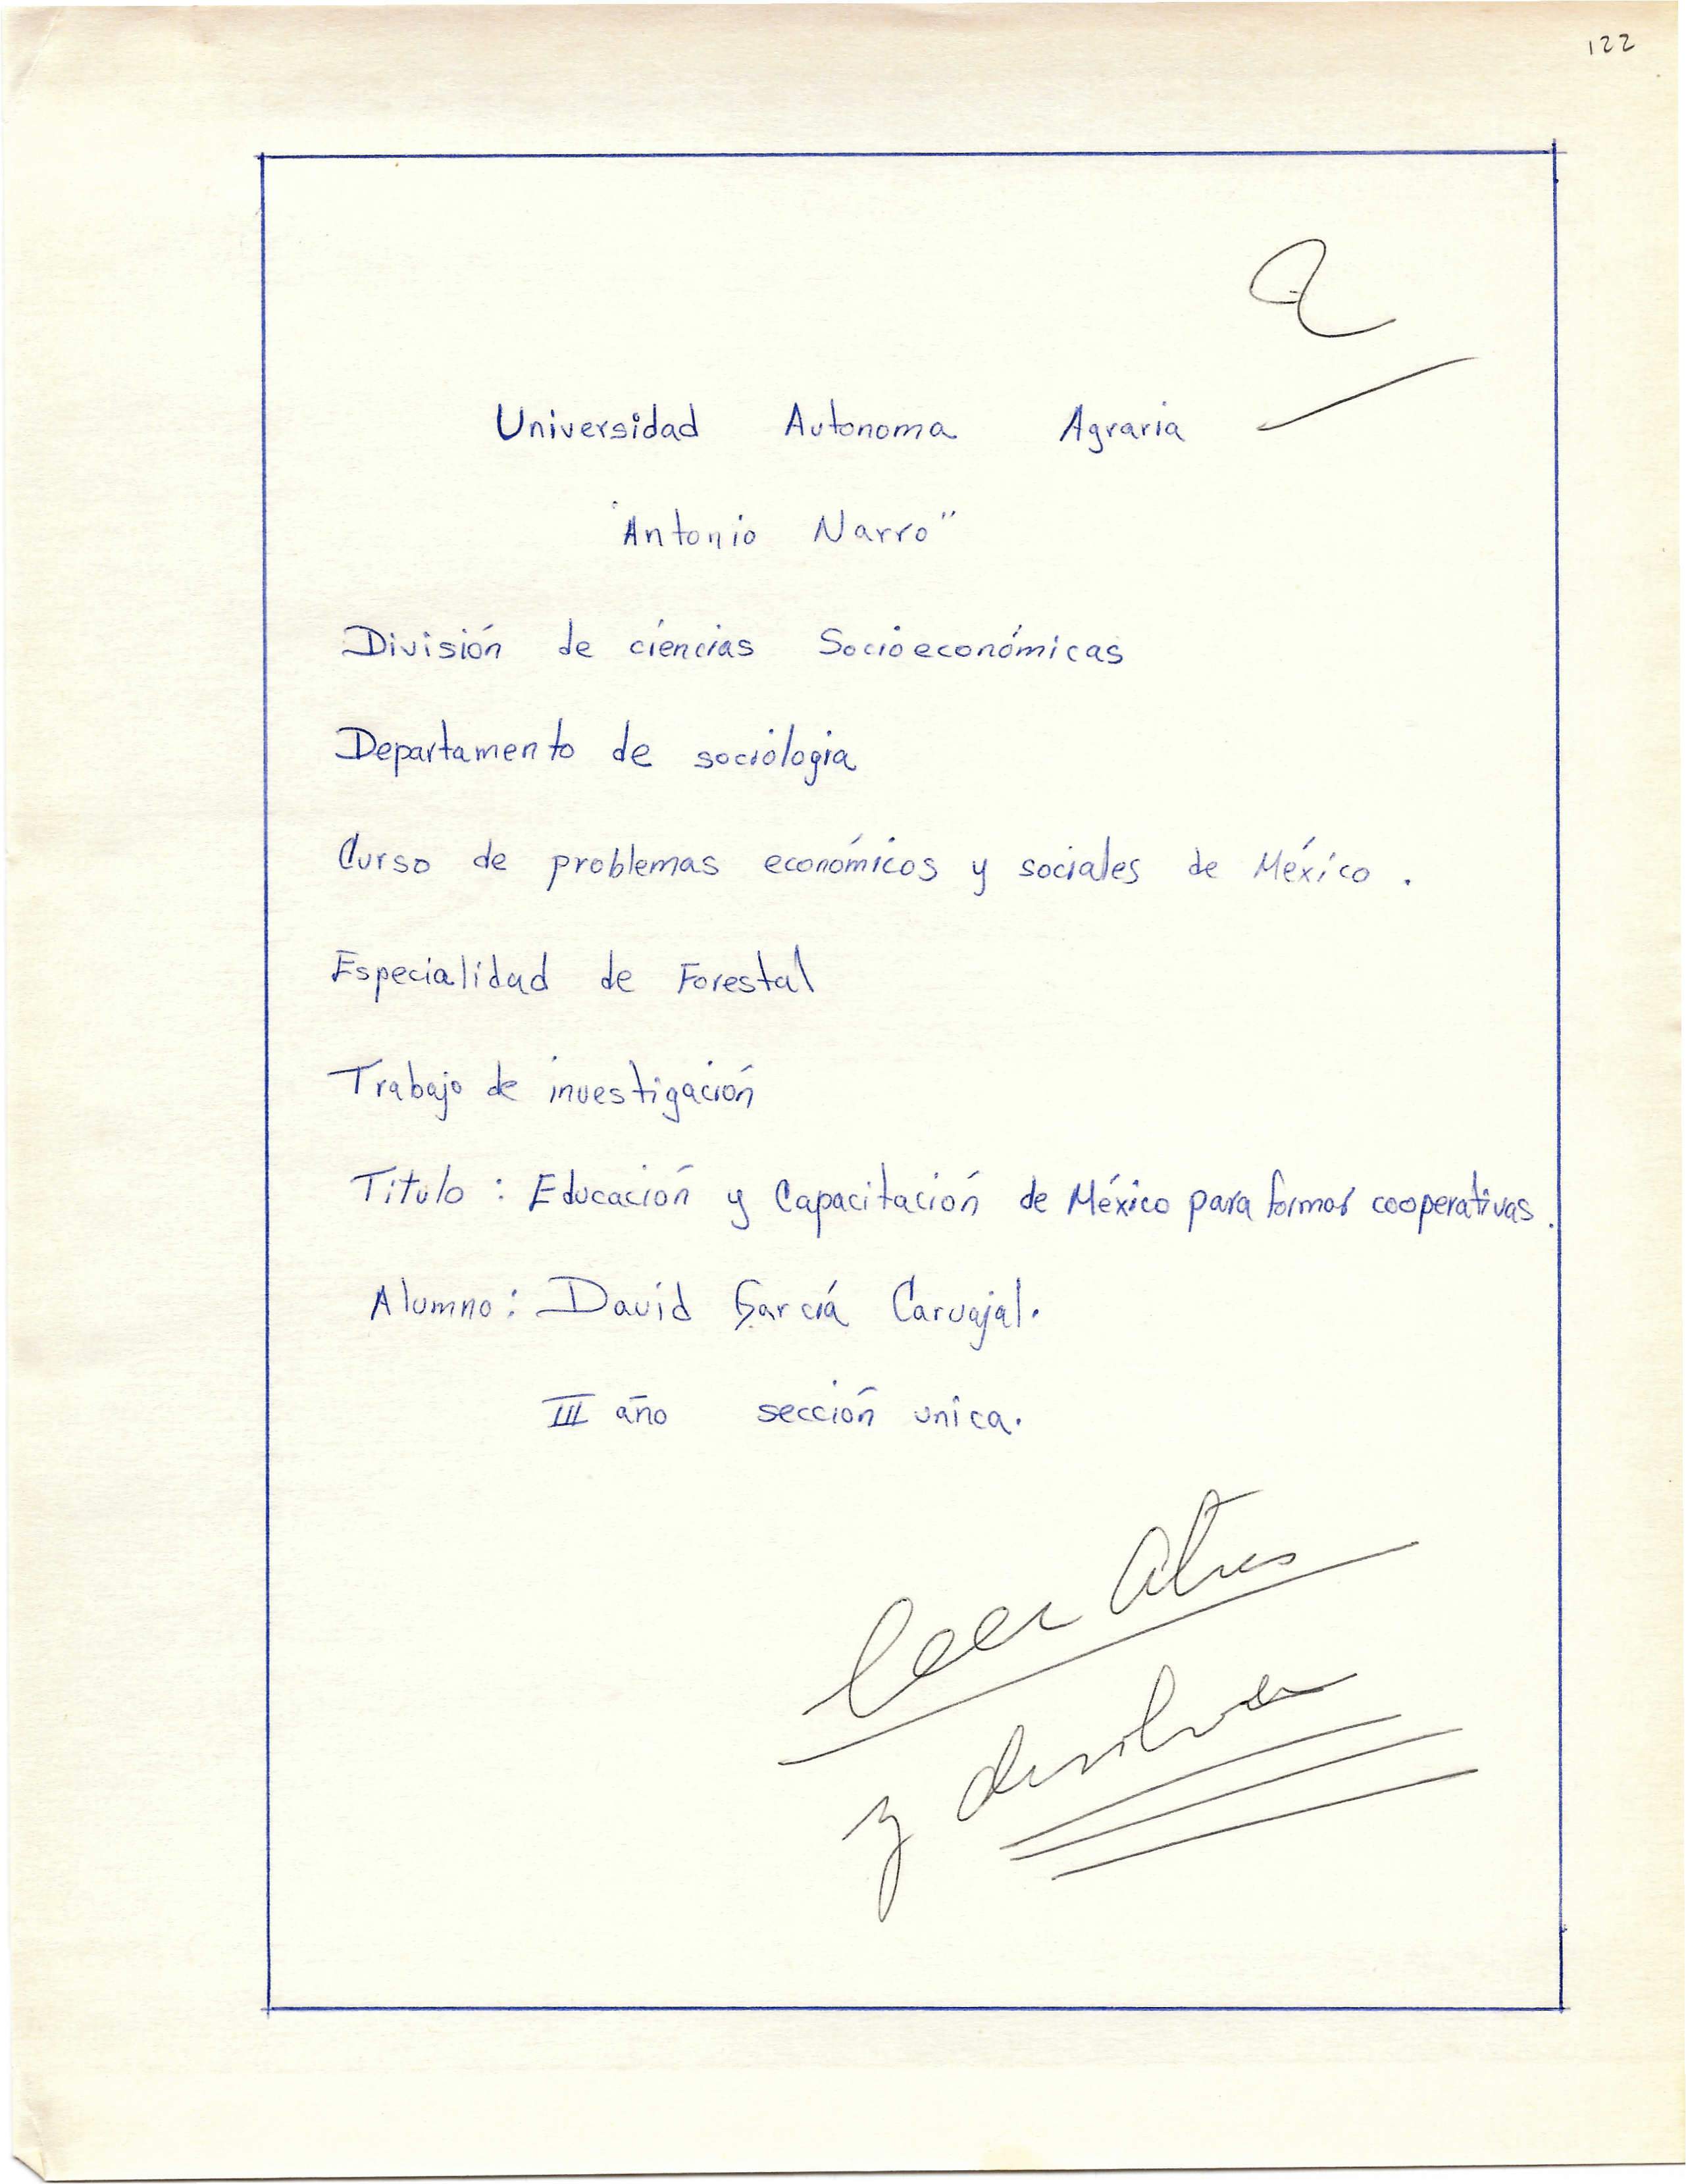 122
Universidad Autonoma Agraria
"Antonio Narro"
División de ciencias Socioeconómicas
Departamento de sociologia
Curso de problemas económicos y sociales de México.
Especialidad de Forestal
Trabajo de investigación
Titulo: Educación y Capacitación de México para formar cooperativas.
Alumno: David García Carvajal.
III año sección unica.
leer atras
y